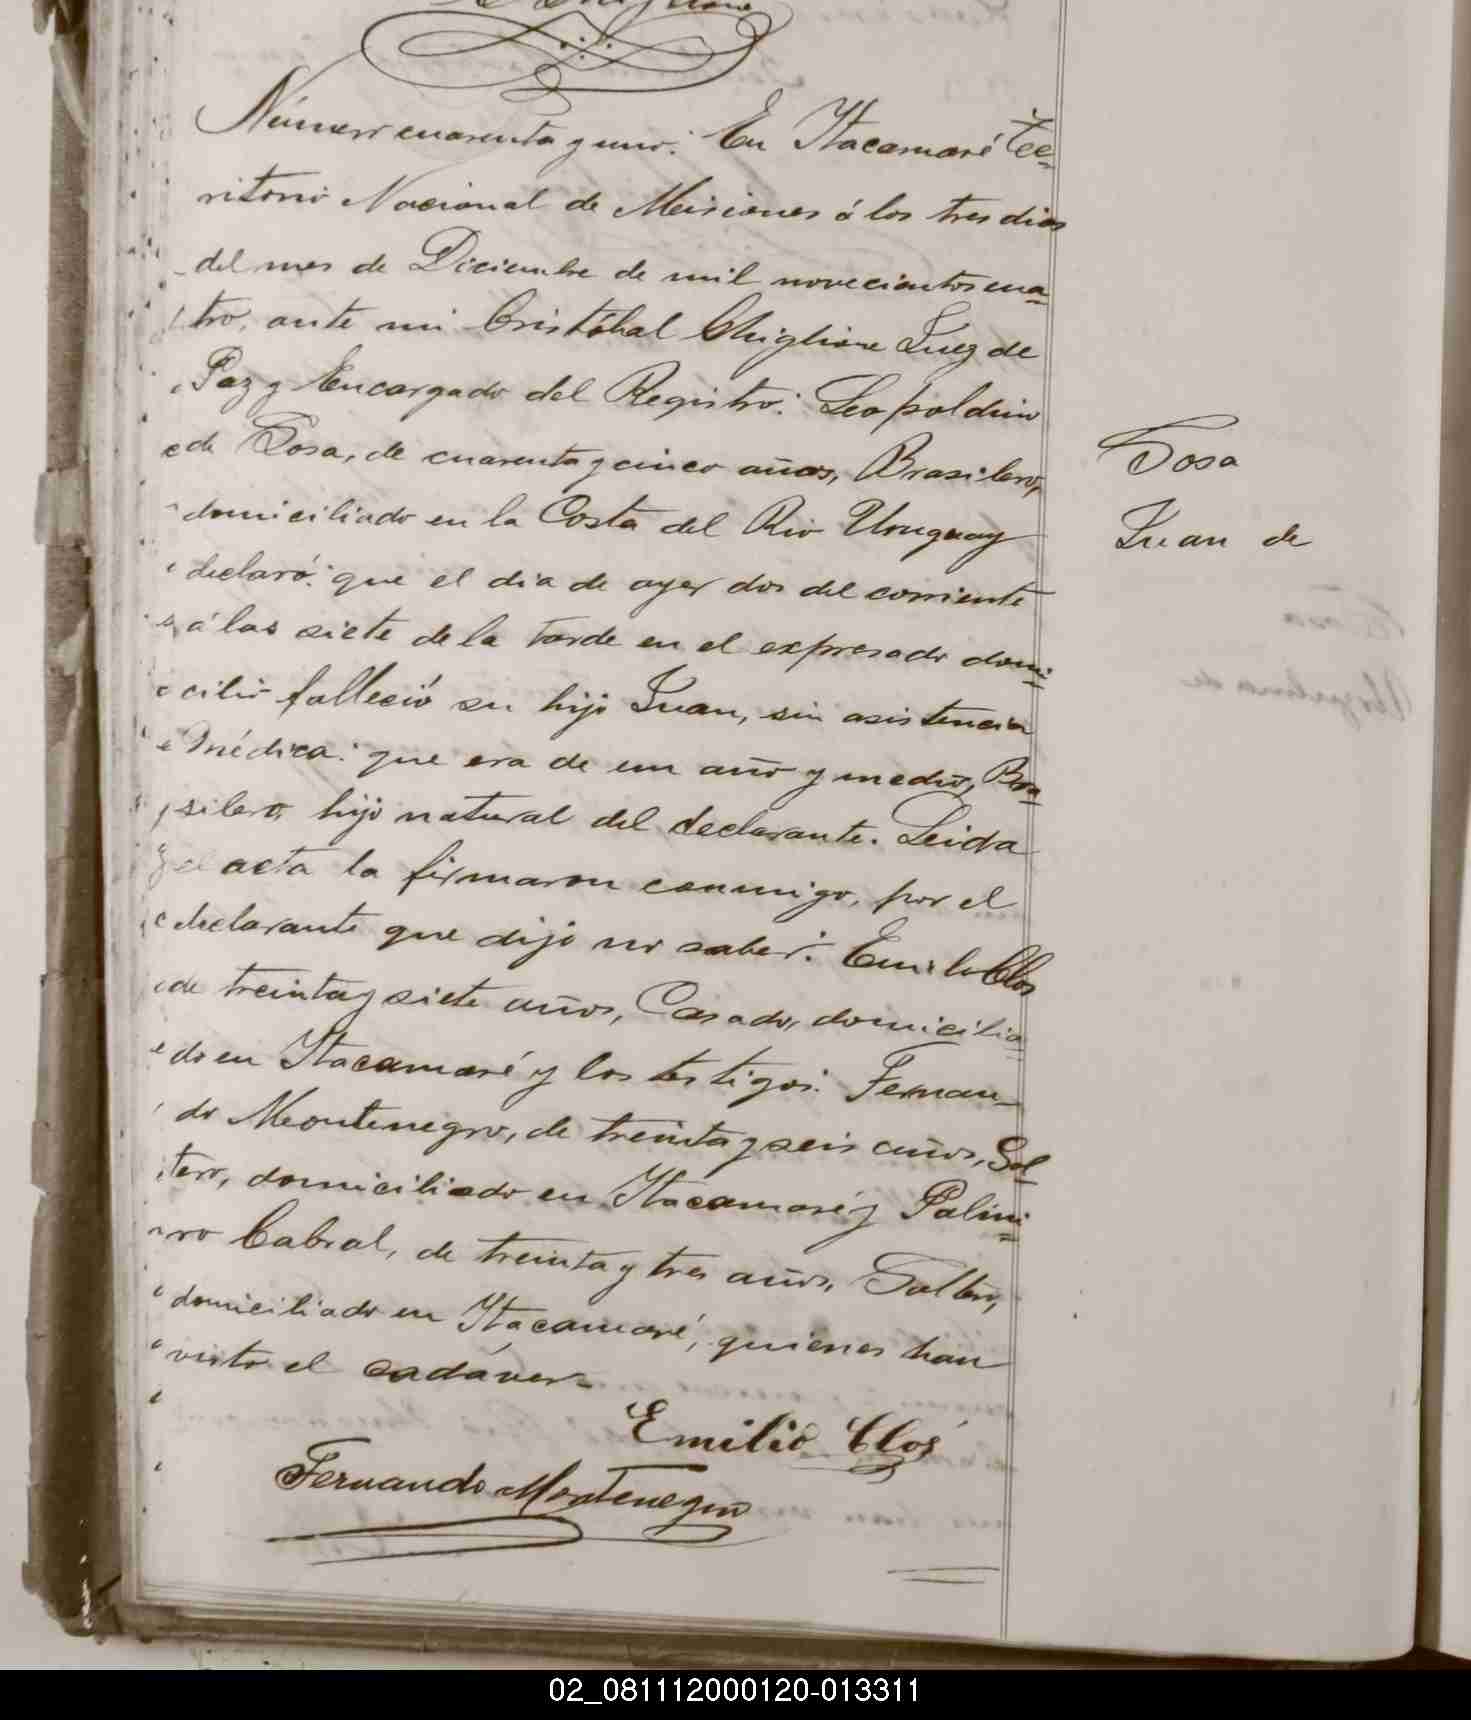 Número cuarenta y uno: En Itacamaré Te-
rritorio Nacional de Misiones á los tres dias
del mes de Diciembre de mil novecientos cua-
tro, ante mi Cristóbal Chiglione Juez de
Paz y Encargado del Registro: Leopoldino
de Sosa, de cuarenta y cinco años, Brasilero,
domiciliado en la Costa del Rio Uruguay
declaró: que el dia de ayer dos del corriente
á las siete de la tarde en el expresado domi-
cilio falleció su hijo Juan, sin asistencia
Médica: que era de un año y medio, Bra-
silero, hijo natural del declarante. Leida
el acta la firmaron conmigo, por el
declarante que dijo no saber: Emilio Clos
de treinta y siete años, Casado, domicilia-
do en Itacamaré y los testigos: Fernan-
do Montenegro, de treinta y seis años, Sol-
tero, domiciliado en Itacamaré y Palmi-
ro Cabral, de treinta y tres años, Soltero,
domiciliado en Itacamaré, quienes han
visto el cadáver.
Emilio Clos
Fernando Montenegro
Sosa
Juan de
02_081112000120-013311